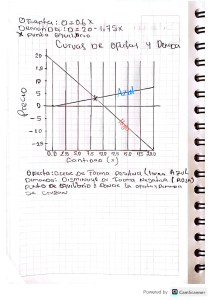 Oferta: O=0.4x
Demanda: D=20-1.75x
* Punto equilibrio
Curvas de ofertas y Demanda
Precio
20
15
10
5
0
-5
-10
-15
Azul
0.0 2.5 5.0 7.5 10.0 12.5 15.0 17.5 20.0
Cantidad (x)
Oferta: Crece de forma positiva (linea Azul)
Demanda: Disminuye de forma negativa (Roja)
Punto de equilibrio es donde la oferta y demanda
se cruzan
Powered by CamScanner